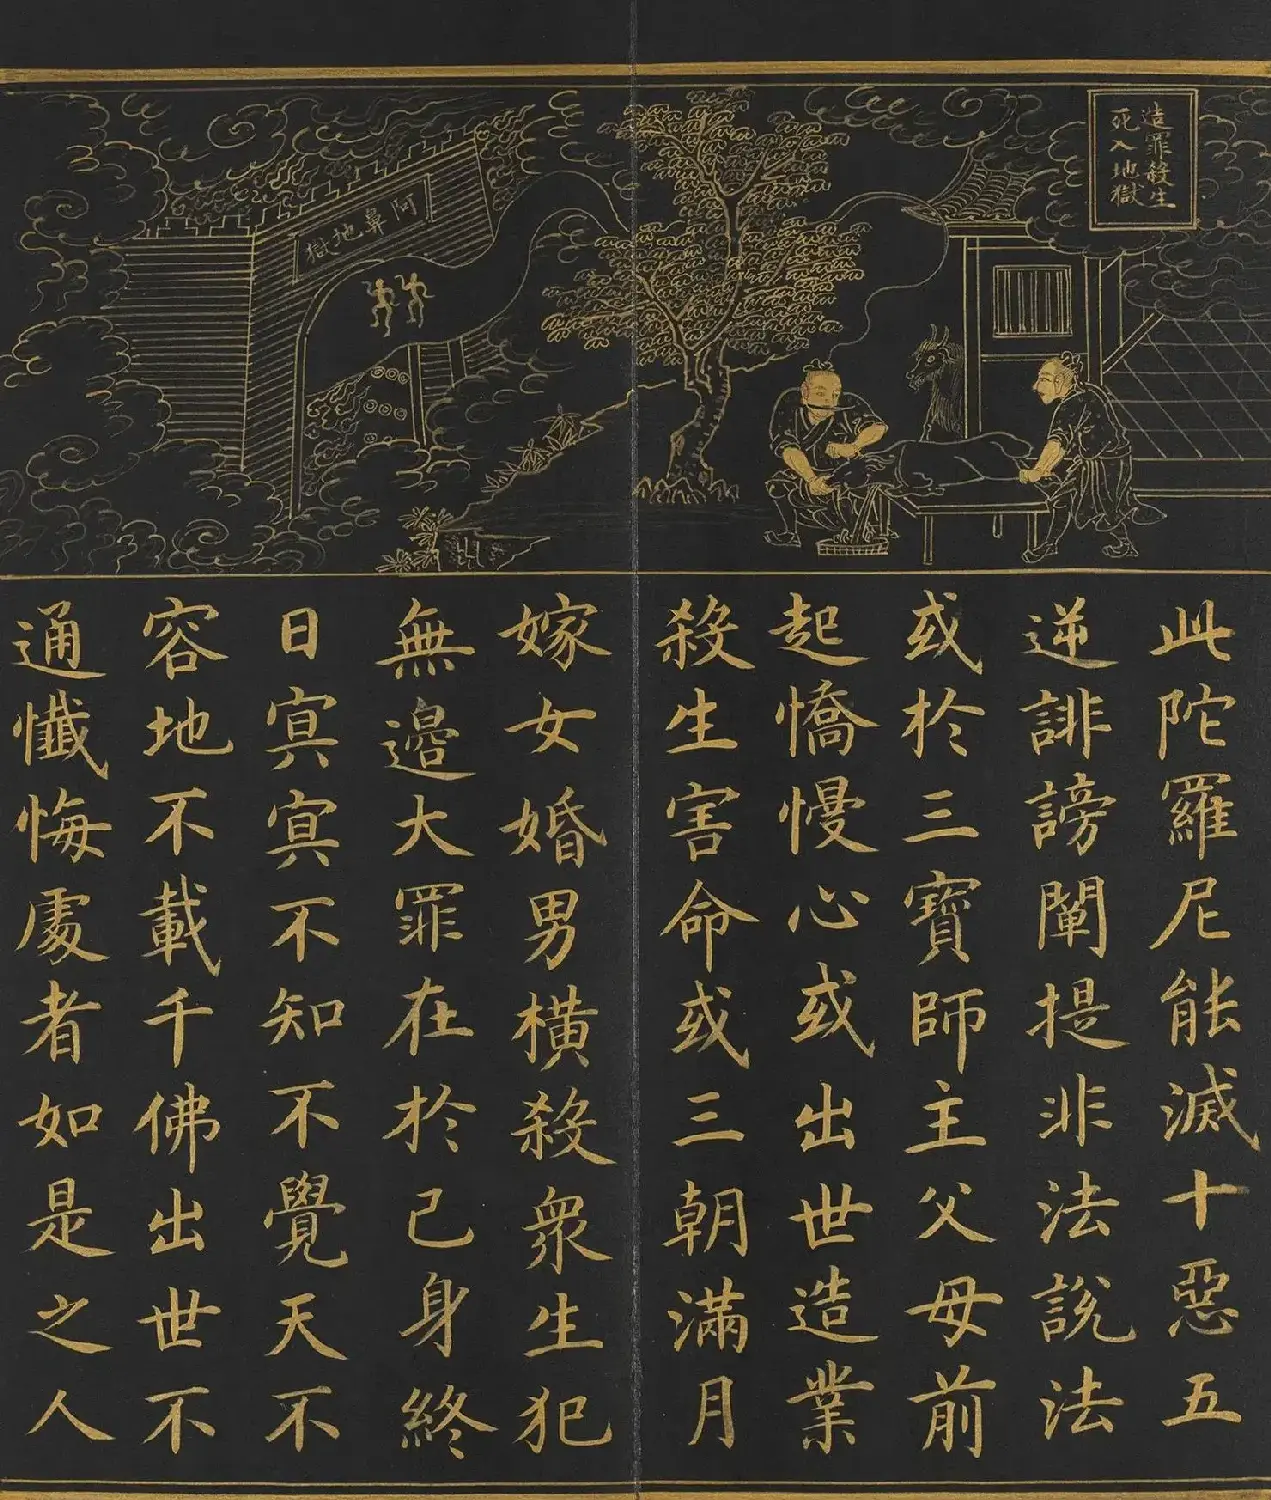 造罪殺生
死入地獄
阿鼻地獄
此陀羅尼能滅十惡五
逆誹謗闡提非法說法
或於三寶師主父母前
起憍慢心或出世造業
殺生害命或三朝滿月
嫁女婚男橫殺衆生犯
無邊大罪在於己身終
日㝠㝠不知不覺天不
容地不載千佛出世不
通懺悔處者如是之人